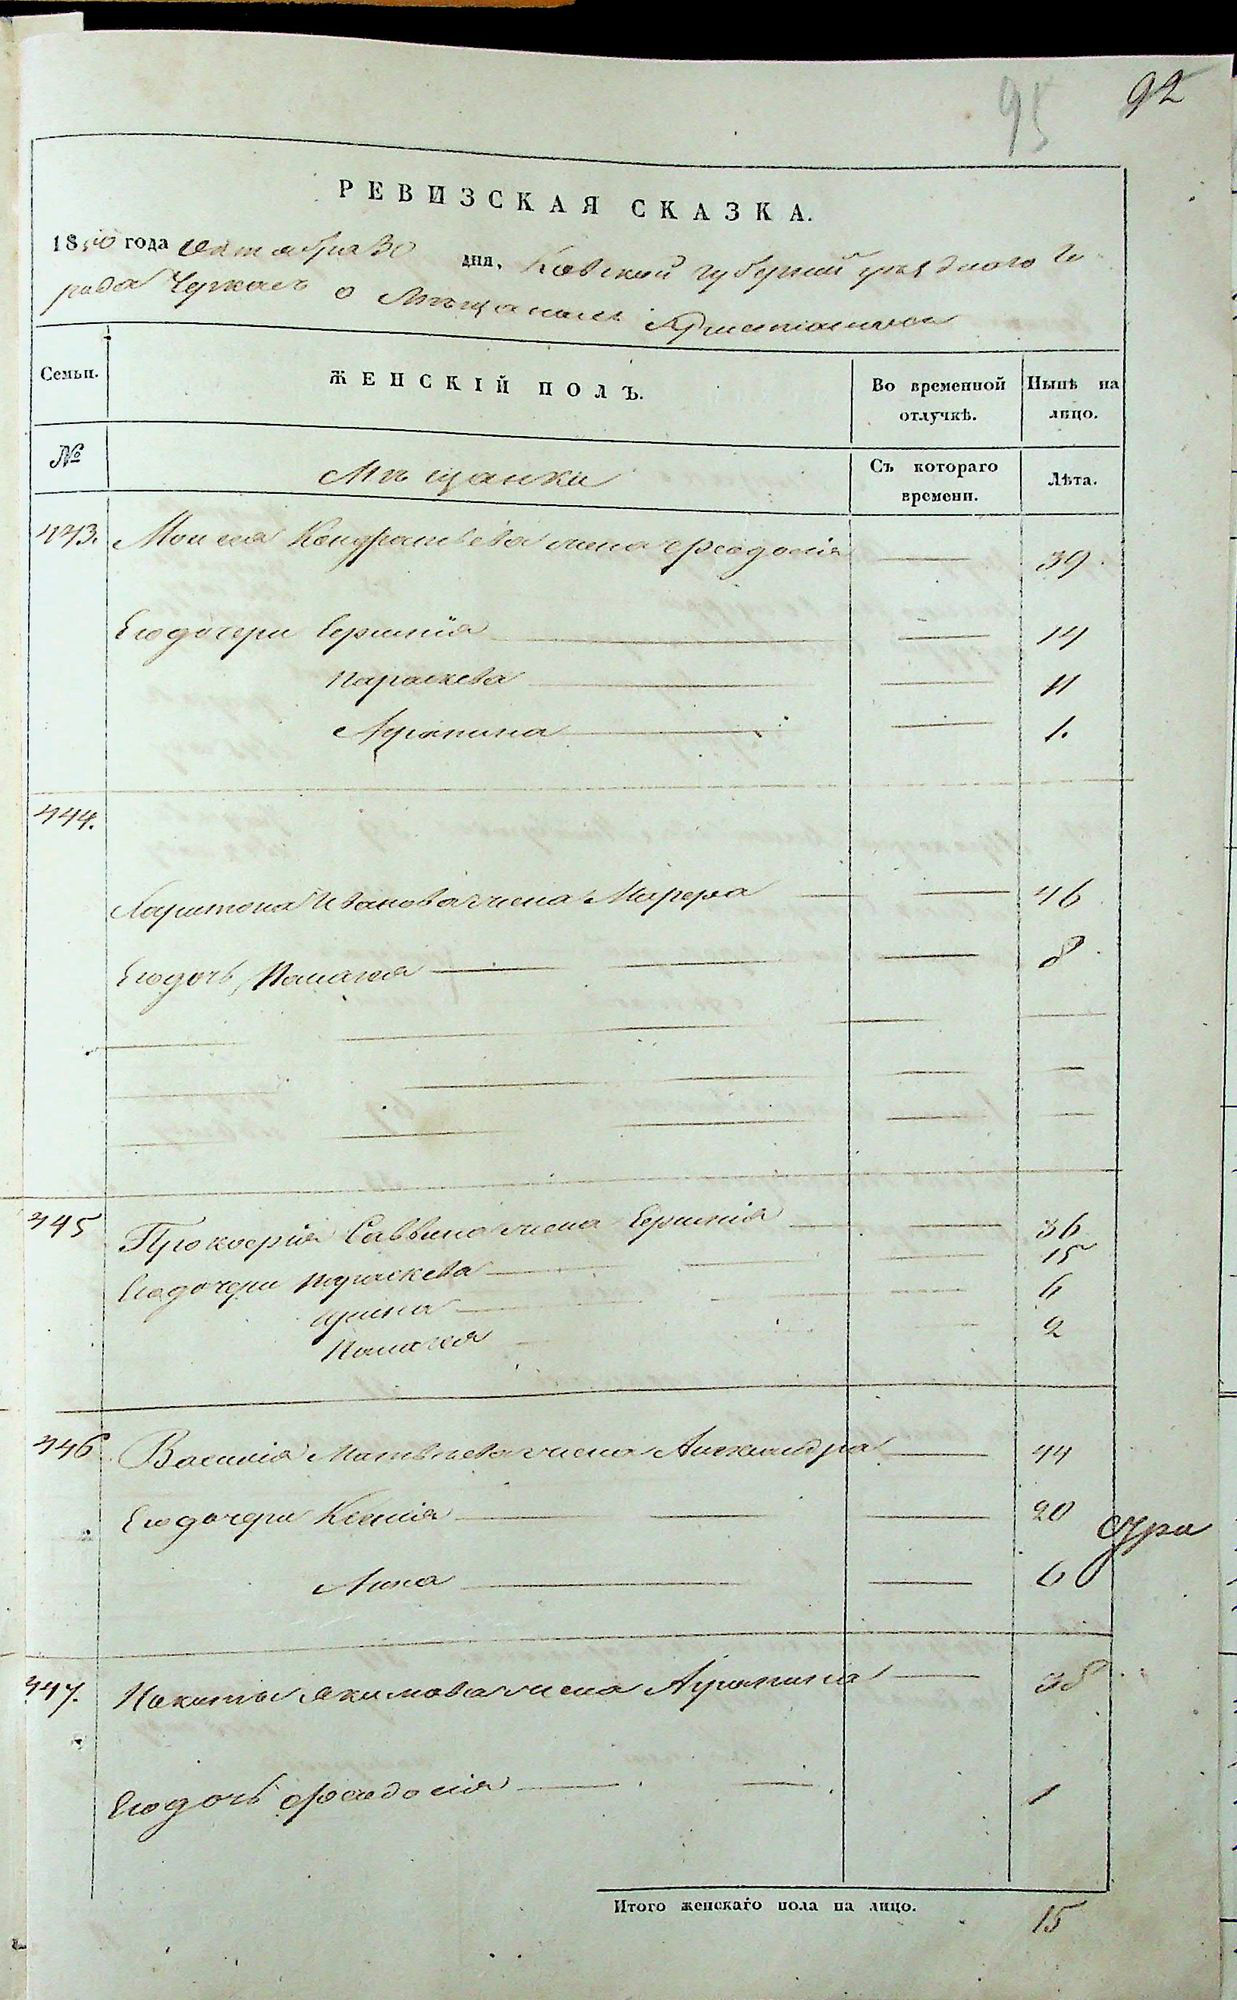 95
92
РЕВИЗСКАЯ СКАЗКА.
1850 года октября 30 дня, Кіевской губерніи уезднаго Го
рода Черкасъ о Мѣщанахъ Христіанахъ
Семьи. ЖЕНСКІЙ ПОЛЪ. Во временной отлучкѣ. Нынѣ на лицо.
№ Мѣщанки Съ котораго времени. Лѣта.
443. Моисея Кондратьева жена Феодосія 39
Его дочери Евфимія 14
Параскева 11
Агрипина 1.
444.
Харитона Иванова жена Марфа 46
Его дочь, Пелагея 8
445 Прокофія Саввина жена Евфимія 36
Его дочери Параскева 15
Ирина 6
Пелагея 2
446 Василія Матвѣева жена Александра 44
Его дочери Ксенія 20
Анна 6
447. Никиты Якимова жена Агрипина 38
Его дочь Феодосія 1
Итого женскаго пола на лицо. 15